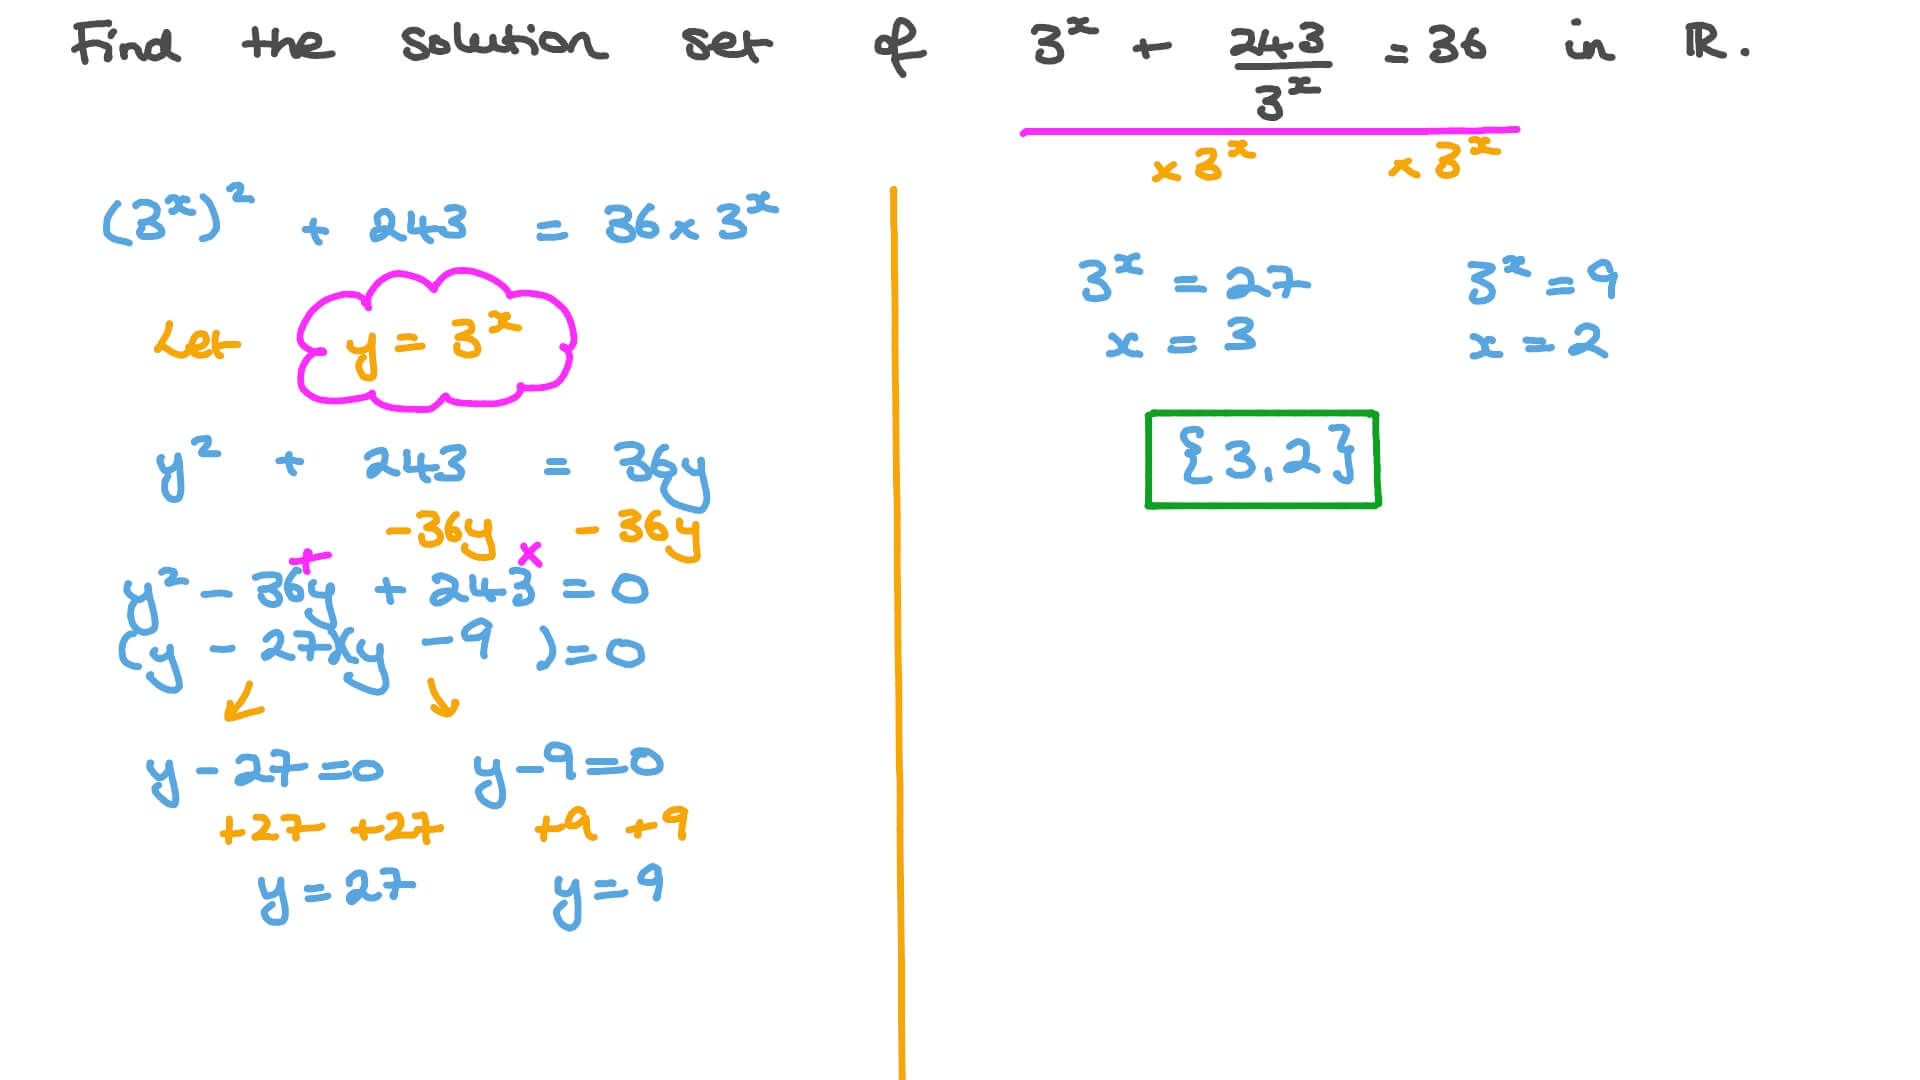 Find the solution set of 3^x + 243/3^x = 36 in ℝ.
×3^x ×3^x
(3^x)^2 + 243 = 36 × 3^x
Let y = 3^x
y^2 + 243 = 36y
-36y - 36y
+ ×
y^2 - 36y + 243 = 0
(y - 27)(y - 9) = 0
y - 27 = 0 y - 9 = 0
+27 +27 +9 +9
y = 27 y = 9
3^x = 27 3^x = 9
x = 3 x = 2
{3,2}